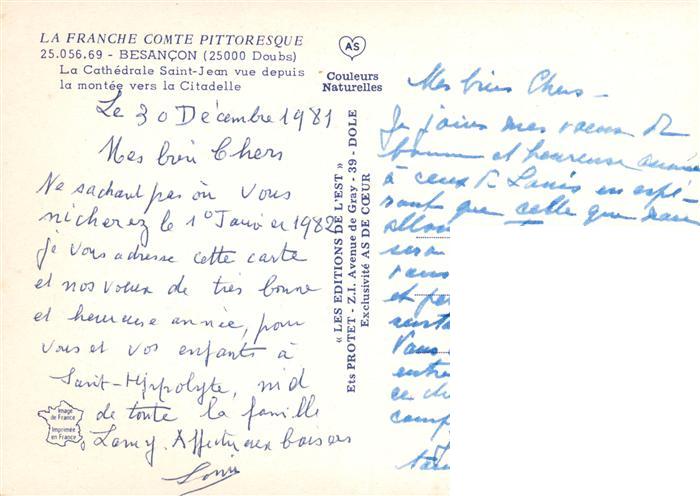 LA FRANCHE COMTE PITTORESQUE
25.056.69 - BESANÇON (25000 Doubs)
La Cathédrale Saint-Jean vue depuis
la montée vers la Citadelle
AS
Couleurs
Naturelles
Le 30 Décembre 1981
Mes bien Chers
Ne sachant pas où vous
nicherez le 1° Janvier 1982
je vous adresse cette carte
et nos voeux de très bonne
et heureuse année, pour
vous et vos enfants à
Saint-Hippolyte, nid
de toute la famille
Lamy. Affectueux baisers
Louis
Image
de France
Imprimée
en France
« LES EDITIONS DE L'EST »
Ets PROTET - Z.I. Avenue de Gray - 39 - DOLE
Exclusivité AS DE CŒUR
Mes biens Chers -
Je joins mes voeux de
bonne et heureuse année
à ceux de Louis en espé-
rant que celle que nous
allon
sera
vous
et
Vous
entre
ce